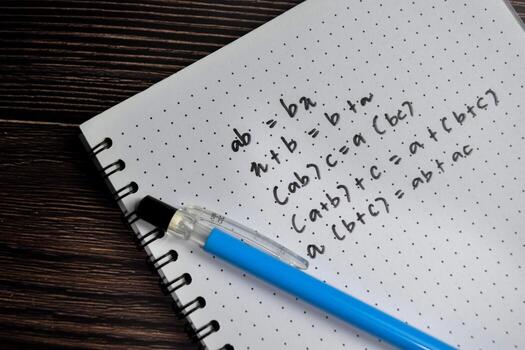 ab = bx
x + b = b + x
(ab) c = a (bc)
(a+b) + c = a + (b+c)
a (b+c) = ab + ac